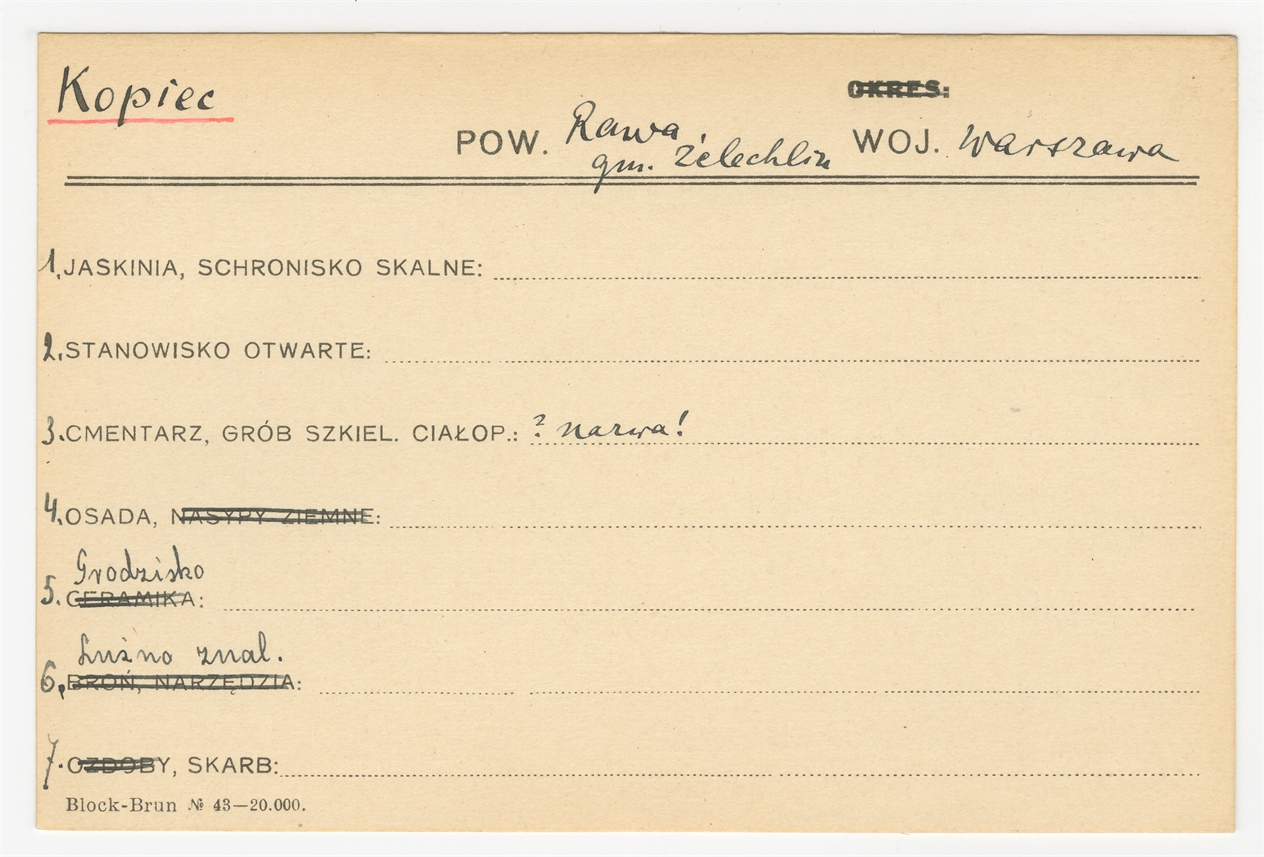 Kopiec
OKRES:
POW. Rawa, WOJ. Warszawa
gm. Żelechlin
1. JASKINIA, SCHRONISKO SKALNE:
2. STANOWISKO OTWARTE:
3. CMENTARZ, GRÓB SZKIEL. CIAŁOP.: ? nazwa!
4. OSADA, NASYPY ZIEMNE:
Grodzisko
5. CERAMIKA:
Luźno znal.
6. BROŃ, NARZĘDZIA:
7. OZDOBY, SKARB:
Block-Brun № 43—20.000.